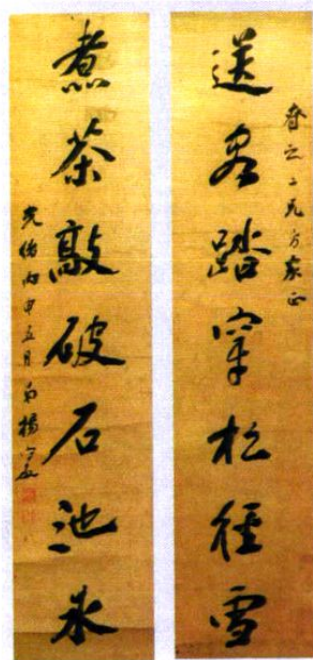 春之二兄方家正
送客踏穿松徑雪
煮茶敲破石池氷
光緒丙申五月弟楊守敬